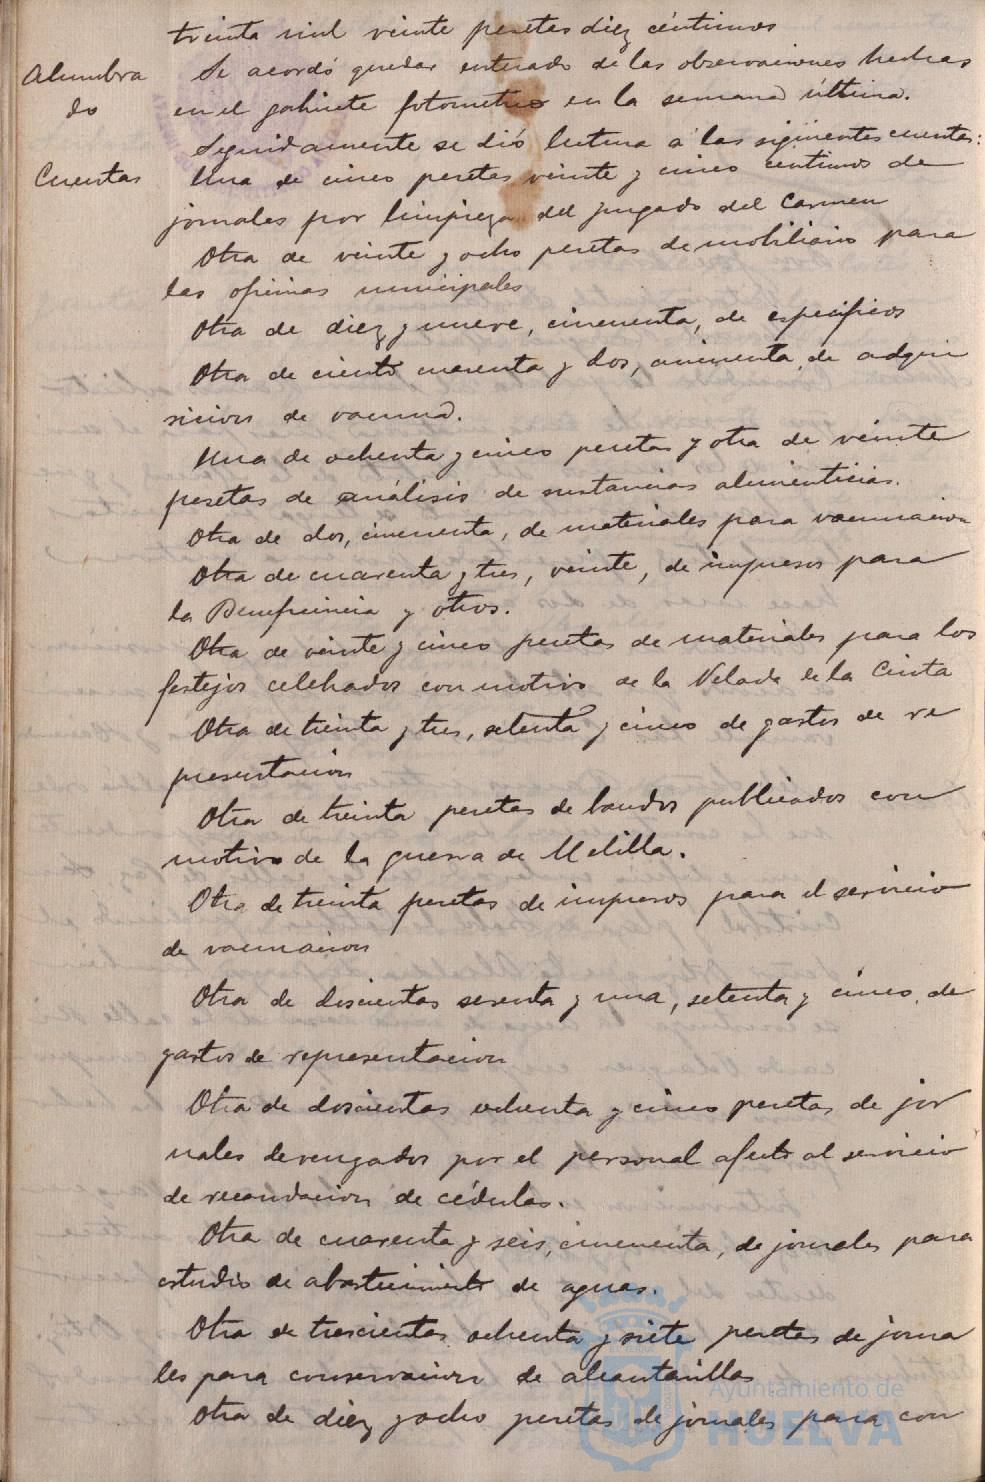 treinta mil veinte pesetas diez céntimos
Alumbra
do
Se acordó quedar enterado de las observaciones hechas
en el gabinete fotometrico en la semana última.
Seguidamente se dió lectura á las siguientes cuentas:
Cuentas
Una de cinco pesetas veinte y cinco centimos de
jornales por limpieza del juzgado del Carmen
Otra de veinte y ocho pesetas de mobiliario para
las oficinas municipales
Otra de diez y nueve, cincuenta, de especificos
Otra de ciento cuarenta y dos, cincuenta, de adqui
sicion de vacuna.
Una de ochenta y cinco pesetas y otra de veinte
pesetas de análisis de sustancias alimenticias.
Otra de dos, cincuenta, de materiales para vacunacion
Otra de cuarenta y tres, veinte, de impresos para
la Beneficencia y otros.
Otra de veinte y cinco pesetas de materiales para los
festejos celebrados con motivo de la Velada de la Cinta
Otra de treinta y tres, setenta y cinco de gastos de re
presentacion
Otra de treinta pesetas de bandos publicados con
motivo de la guerra de Melilla.
Otra de treinta pesetas de impresos para el servicio
de vacunacion
Otra de doscientas sesenta y una, setenta y cinco, de
gastos de representacion
Otra de doscientas ochenta y cinco pesetas de jor
nales devengados por el personal afecto al servicio
de recaudacion de cédulas.
Otra de cuarenta y seis, cincuenta, de jornales para
estudio de abastecimiento de aguas.
Otra de trescientas ochenta y siete pesetas de jorna
les para conservacion de alcantarillas
Otra de diez y ocho pesetas de jornales para con
Ayuntamiento de
HUELVA